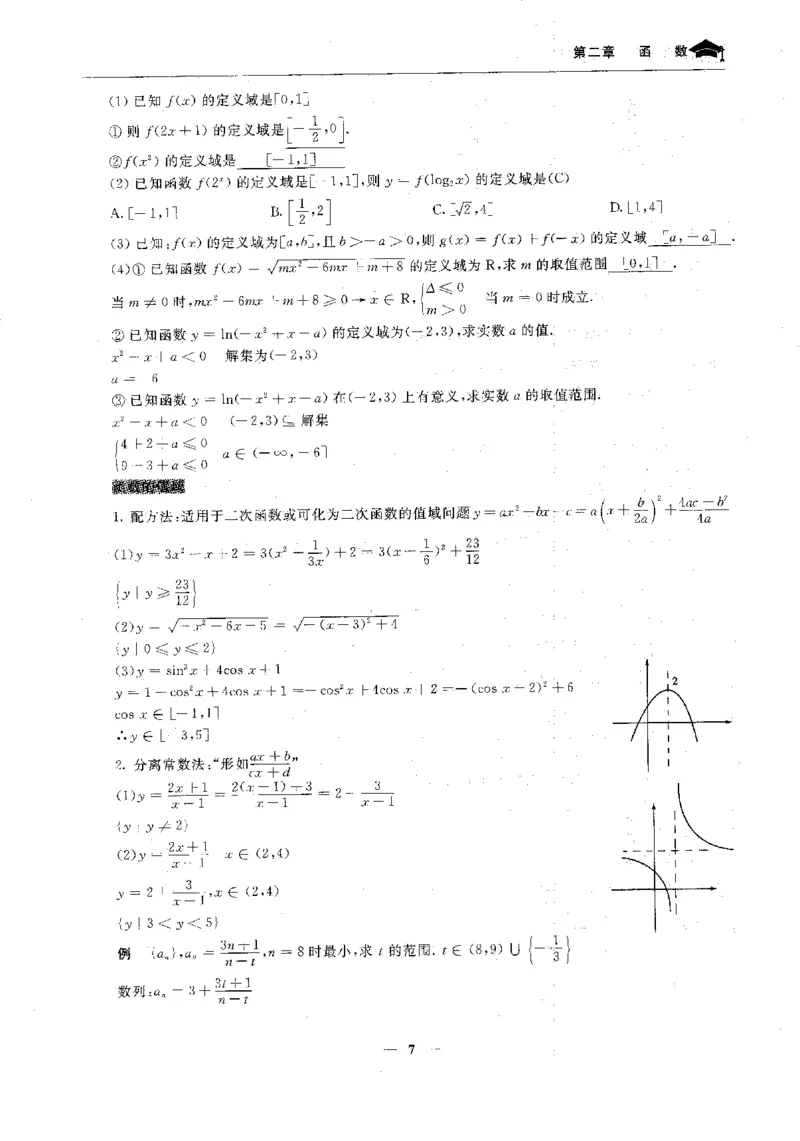 第二章 函 数
(1) 已知 f(x) 的定义域是[0,1]
① 则 f(2x+1) 的定义域是[-1/2,0].
② f(x²) 的定义域是 [-1,1]
(2) 已知函数 f(2ˣ) 的定义域是[-1,1],则 y = f(log₂x) 的定义域是(C)
A. [-1,1] B. [1/2,2] C. [√2,4] D. [1,4]
(3) 已知:f(x) 的定义域为[a,b],且 b>-a>0,则 g(x) = f(x)+f(-x) 的定义域 [a,-a] .
(4)① 已知函数 f(x) = √(mx²-6mx+m+8) 的定义域为 R,求 m 的取值范围 [0,1] .
当 m ≠ 0 时,mx²-6mx+m+8 ≥ 0 → x ∈ R, {Δ ≤ 0 m > 0 当 m = 0 时成立.
② 已知函数 y = ln(-x²+x-a) 的定义域为(-2,3),求实数 a 的值.
x²-x+a<0 解集为(-2,3)
a = 6
③ 已知函数 y = ln(-x²+x-a) 在(-2,3) 上有意义,求实数 a 的取值范围.
x²-x+a<0 (-2,3) ⊆ 解集
{4+2+a ≤ 0 9-3+a ≤ 0 a ∈ (-∞,-6]
函数的值域
1. 配方法:适用于二次函数或可化为二次函数的值域问题 y = ax²+bx+c = a(x+b/2a)²+(4ac-b²)/4a
(1) y = 3x²-x+2 = 3(x²-1/3x)+2 = 3(x-1/6)²+23/12
{y | y ≥ 23/12}
(2) y = √(-x²-6x-5) = √(-(x-3)²+4)
{y | 0 ≤ y ≤ 2}
(3) y = sin²x+4cos x+1
y = 1-cos²x+4cos x+1 = -cos²x+4cos x+2 = -(cos x-2)²+6
cos x ∈ [-1,1]
∴ y ∈ [-3,5]
2
2. 分离常数法:“形如(ax+b)/(cx+d)”
(1) y = (2x+1)/(x-1) = (2(x-1)+3)/(x-1) = 2-3/(x-1)
{y | y ≠ 2}
(2) y = (2x+1)/(x-1) x ∈ (2,4)
y = 2+3/(x-1), x ∈ (2,4)
{y | 3 < y < 5}
例 {aₙ},aₙ = (3n+1)/(n-t),n = 8 时最小,求 t 的范围. t ∈ (8,9) ∪ {-1/3}
数列:aₙ = 3+(3t+1)/(n-t)
— 7 —